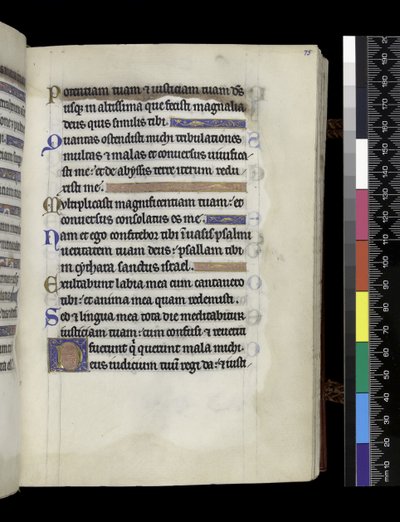 75
Potentiam tuam & iusticiam tuam ds
usq; in altissima que fecisti magnalia
deus quis similis tibi.
Quantas ostendisti michi tribulationes
multas & malas et conuersus uiuifica-
sti me: et de abyssis terre iterum redu
xisti me.
Multiplicasti magnificentiam tuam: et
conuersus consolatus es me.
Nam et ego confitebor tibi in uasis psalmi
ueritatem tuam deus: psallam tibi
in cythara sanctus israel.
Exultabunt labia mea cum cantauero
tibi: et anima mea quam redemisti.
Sed & lingua mea tota die meditabitur
iusticiam tuam: cum confusi & reueriti
fuerint q querunt mala michi.
Deus iudicium tuu regi da: & iusti-